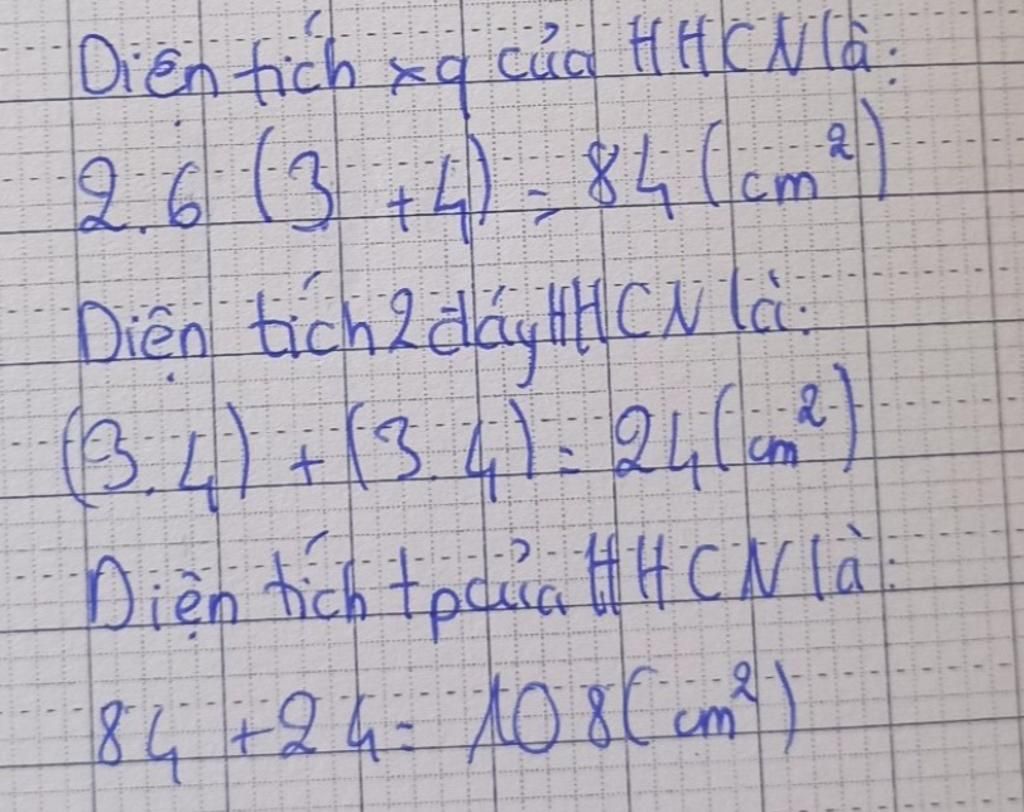 Diện tích xq của HHCN là:
2.6 (3 + 4) = 84 (cm²)
Diện tích 2 đáy HHCN là:
(3.4) + (3.4) = 24 (cm²)
Diện tích tp của HHCN là:
84 + 24 = 108 (cm²)